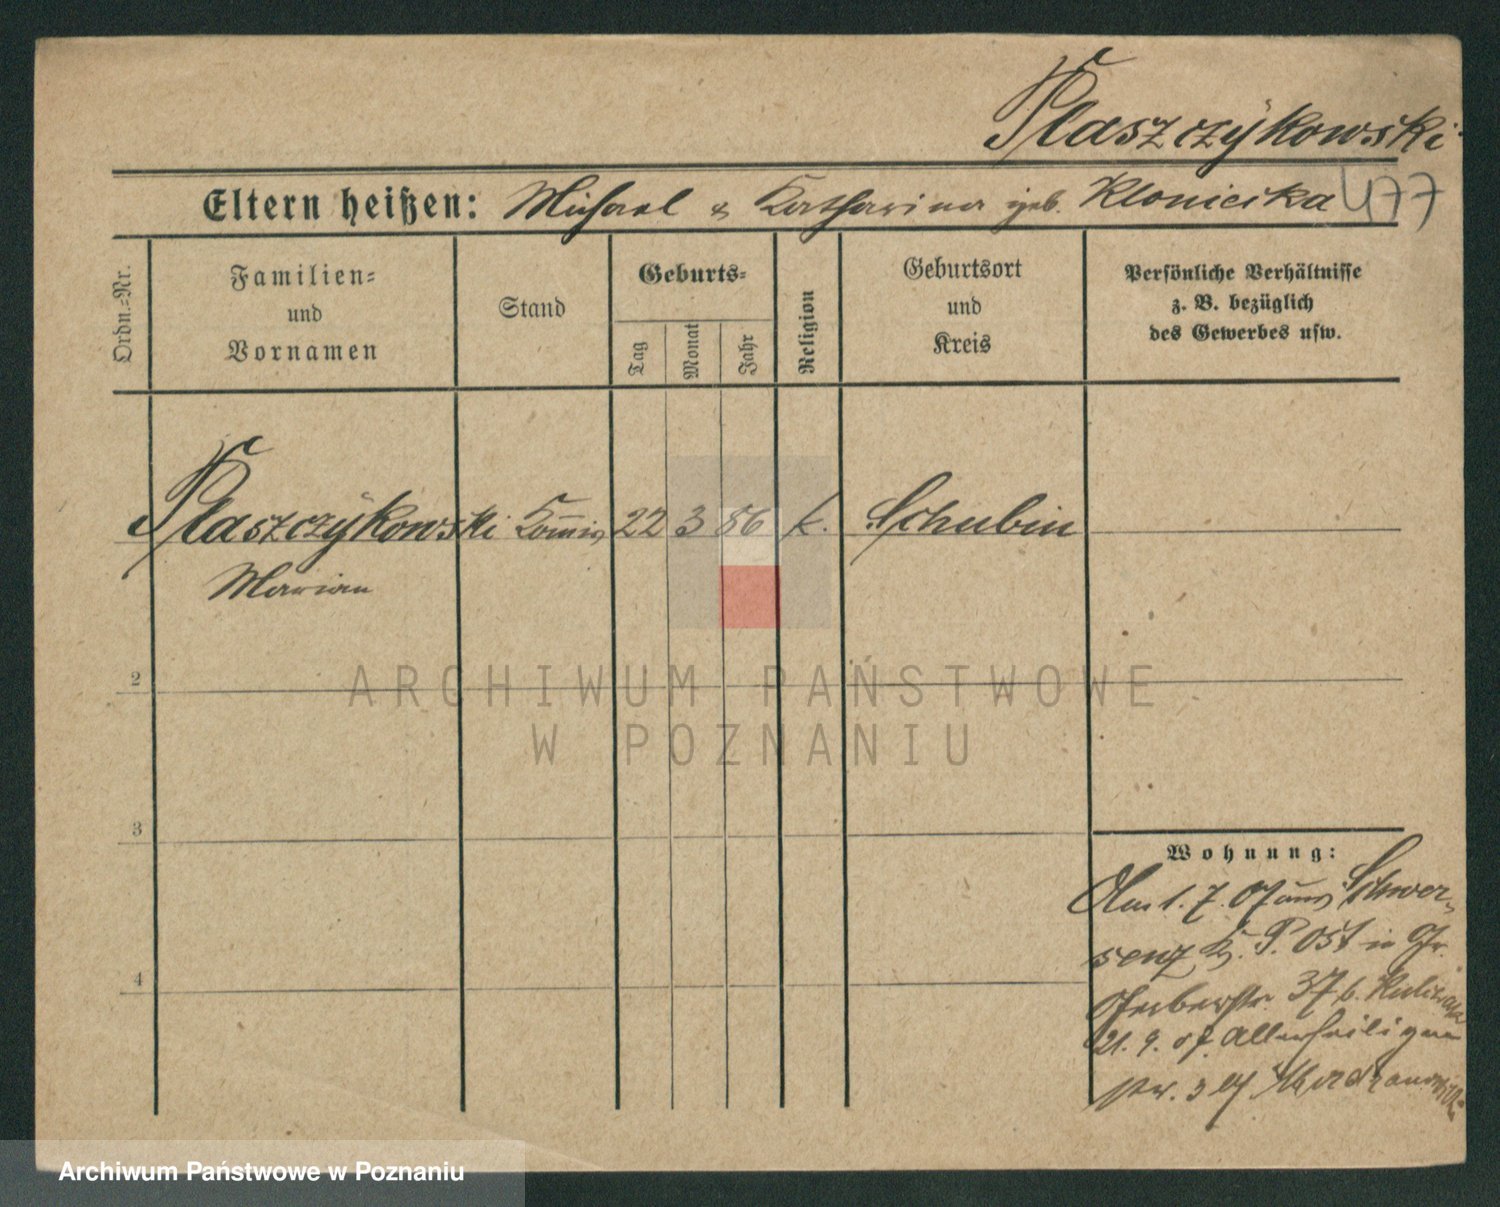 Płaszczykowski
Eltern heißen: Michael & Katharina geb. Klonicika 477
Ordn.=Nr.
Familien=
und
Vornamen
Stand
Geburts=
Tag
Monat
Jahr
Religion
Geburtsort
und
Kreis
Persönliche Verhältnisse
z. B. bezüglich
des Gewerbes usw.
Płaszczykowski Kommis 22 3 86 k. Schubin
Marian
2
3
4
Wohnung:
Am 1. 7. 07 aus Schwer-
senz K. P. Ost in Gr.
Gerberstr. 37 b.
21. 9. 07. Allerheiligen
str. 3
ARCHIWUM PAŃSTWOWE
W POZNANIU
Archiwum Państwowe w Poznaniu